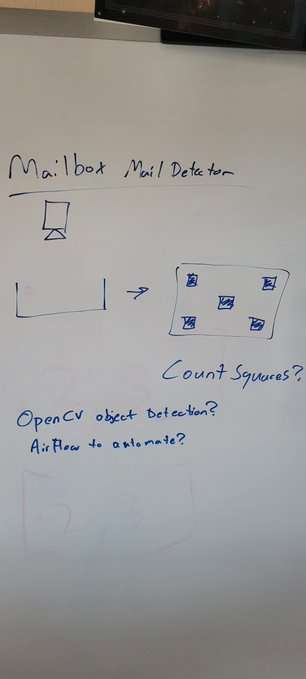 Mailbox Mail Detector
Count Squares?
OpenCV object Detection?
Airflow to automate?
2 3